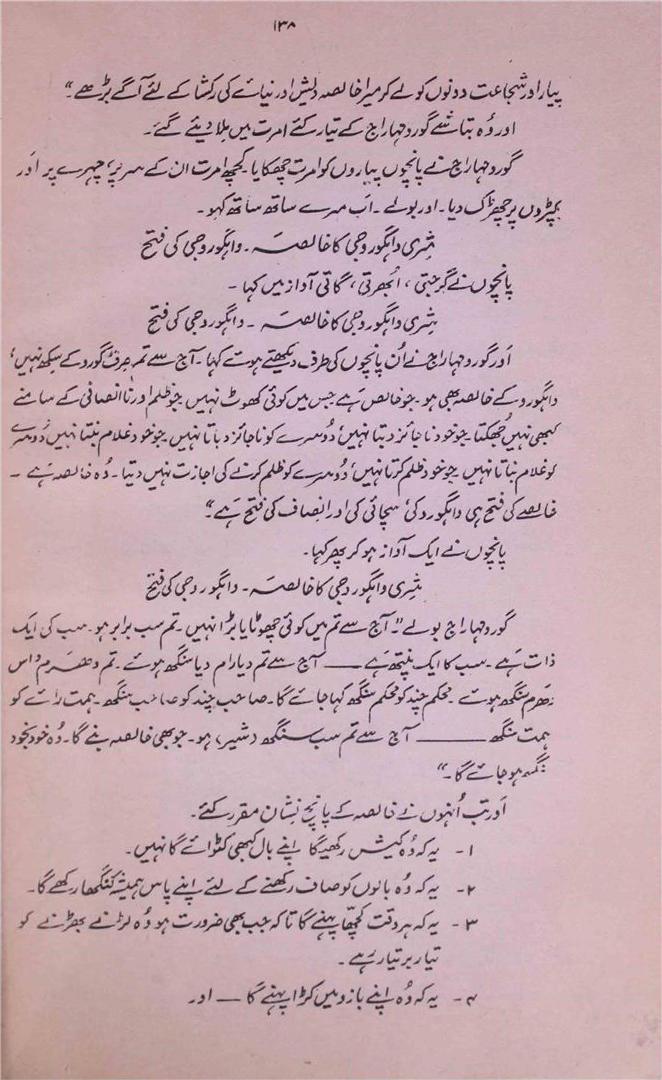 ۱۳۸
پیار اور شجاعت دونوں کو لے کر میرا خالصہ دیش اور نیائے کی رکشا کے لئے آگے بڑھے۔"
اور وُہ بتاشے گورو مہاراج کے تیار کئے امرت میں مِلا دیئے گئے۔
گورو مہاراج نے پانچوں پیاروں کو امرت چھکایا۔ کچھ امرت ان کے سر پر، چہرے پر اَور
کپڑوں پر چھڑک دیا۔ اور بولے۔ اَب میرے ساتھ ساتھ کہو۔
شِری واہگورو جی کا خالصہ۔ واہگورو جی کی فتح
پانچوں نے گرجتی، اُبھرتی، گاتی آواز میں کہا۔
شِری واہگورو جی کا خالصہ۔ واہگورو جی کی فتح
اَور گورو مہاراج نے اُن پانچوں کی طرف دیکھتے ہوئے کہا۔ آج سے تم صِرف گورو کے سکھ نہیں،
واہگورو کے خالصہ بھی ہو۔ جو خالص ہَے جس میں کوئی کھوٹ نہیں۔ جو ظلم اور نا انصافی کے سامنے
کبھی نہیں جُھکتا۔ جو خود ناجائز دبتا نہیں، دُوسرے کو ناجائز دباتا نہیں۔ جو خود غلام بنتا نہیں دُوسرے
کو غلام بناتا نہیں۔ جو خود ظلم کرتا نہیں، دُوسرے کو ظلم کرنے کی اجازت نہیں دیتا۔ وُہ خالصہ ہَے۔
خالصے کی فتح ہی واہگورو کی، سچائی کی اور انصاف کی فتح ہَے"۔
پانچوں نے ایک آواز ہو کر پھر کہا۔
شِری واہگورو جی کا خالصہ۔ واہگورو جی کی فتح
گورو مہاراج بولے"۔ آج سے تم میں کوئی چھوٹا یا بڑا نہیں۔ تم سب برابر ہو۔ سب کی ایک
ذات ہَے۔ سب کا ایک پنتھ ہَے —— آج سے تم دیا رام دیا سنگھ ہوئے۔ تم دھرم داس
دھرم سنگھ ہوئے۔ محکم چند کو محکم سنگھ کہا جائے گا۔ صاحب چند کو صاحب سنگھ۔ ہمت رائے کو
ہمت سنگھ —— آج سے تم سب سنگھ (شیر) ہو۔ جو بھی خالصہ بنے گا۔ وُہ خود بخود
سنگھ ہو جائے گا۔"
اَور تب اُنہوں نے خالصہ کے پانچ نشان مقرر کئے۔
۱۔ یہ کہ وُہ کیش رکھیگا اپنے بال کبھی کٹوائے گا نہیں۔
۲۔ یہ کہ وُہ بالوں کو صاف رکھنے کے لئے اپنے پاس ہمیشہ کنگھا رکھے گا۔
۳۔ یہ کہ ہر وقت کچھا پہنے گا تاکہ جب بھی ضرورت ہو وُہ لڑنے بھڑنے کو
تیار بر تیار رہے۔
۴۔ یہ کہ وُہ اپنے بازو میں کڑا پہنے گا — اور۔